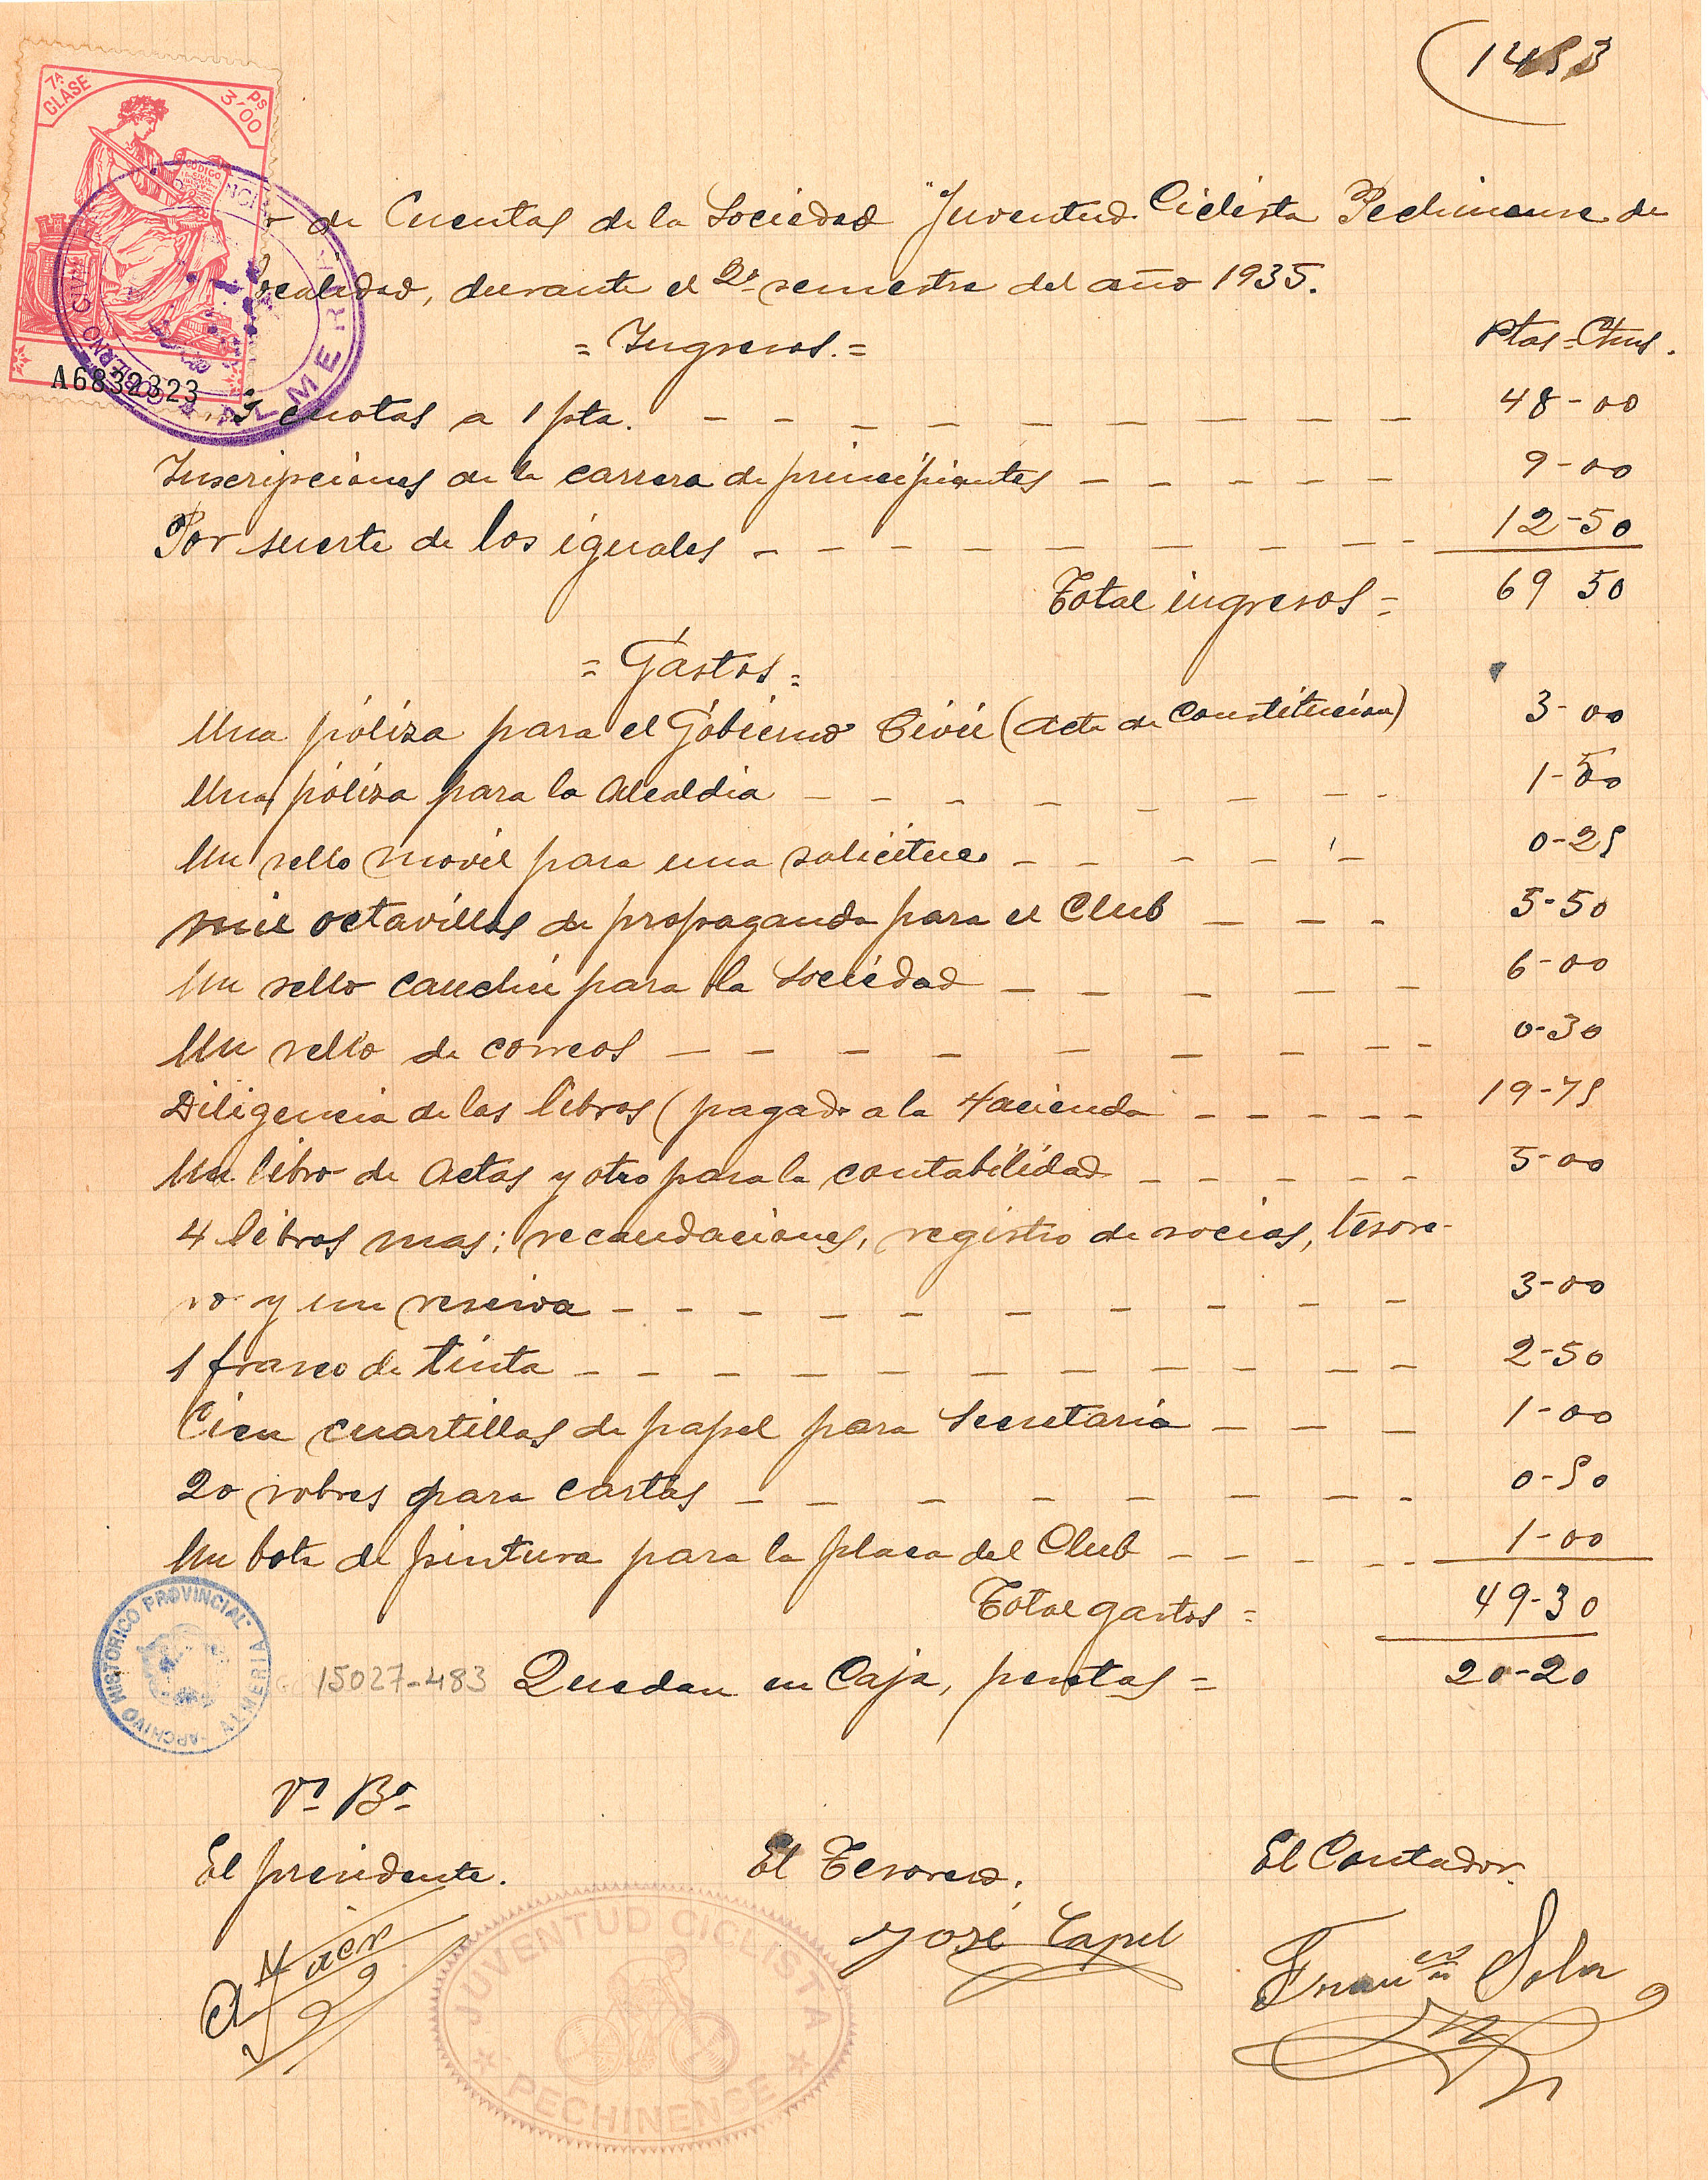 1453
7ª CLASE
PS 3'00
CÓDIGO
GOBIERNO CIVIL
ALMERIA
A6832323
de Cuentas de la Sociedad "Juventud Ciclista Pechinense de
localidad, durante el 2º semestre del año 1935.
= Ingresos. =
Ptas - Ctms.
cuotas a 1 pta. - - - - - - - - - 48-00
Inscripciones de la carrera de principiantes - - - - - 9-00
Por suerte de los iguales - - - - - - - - - 12-50
Total ingresos = 69 50
= Gastos =
Una póliza para el Gobierno Civil (acta de Constitución) 3-00
Una póliza para la Alcaldia - - - - - - - 1-50
Un sello movil para una solicitud - - - - - 0-25
mil octavillas de propaganda para el Club - - - 5-50
Un sello cauchú para la Sociedad - - - - - 6-00
Un sello de correos - - - - - - - - - 0-30
Diligencia de los libros (pagado a la Hacienda - - - - - 19-75
Un libro de Actas y otro para la contabilidad - - - - - 5-00
4 libros mas; recaudaciones, registro de socios, tesore-
ro y un reserva - - - - - - - - - 3-00
1 frasco de tinta - - - - - - - - - - 2-50
Cien cuartillas de papel para Secretaría - - - 1-00
20 sobres para cartas - - - - - - - - 0-50
Un bote de pintura para la placa del Club - - - - 1-00
Total gastos = 49-30
15027-483 Quedan en Caja, pesetas = 20-20
ARCHIVO HISTORICO PROVINCIAL ALMERIA
Vº Bº
El presidente. El Tesorero, El Contador.
José Capel
Franco Sola
JUVENTUD CICLISTA
PECHINENSE